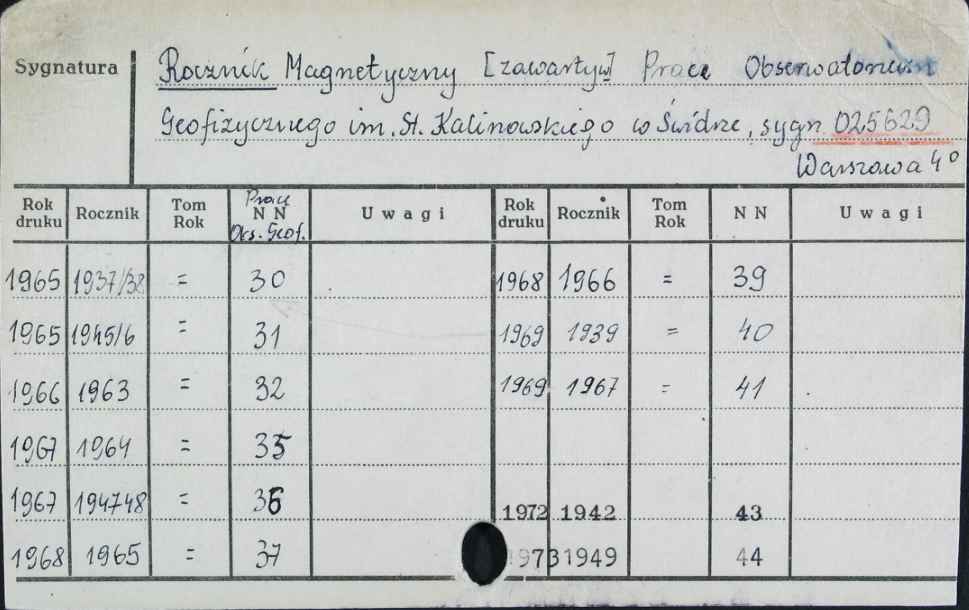 Sygnatura
Rocznik Magnetyczny [zawarty w] Prace Obserwatorium
Geofizycznego im. St. Kalinowskiego w Świdrze, sygn 025629
Warszawa 4°
Rok druku Rocznik Tom Rok Prace NN Obs. Geof. Uwagi Rok druku Rocznik Tom Rok NN Uwagi
1965 1937/38 = 30 1968 1966 = 39
1965 1945/6 = 31 1969 1939 = 40
1966 1963 = 32 1969 1967 = 41
1967 1964 = 35
1967 194748 = 36 1972 1942 43
1968 1965 = 37 1973 1949 44